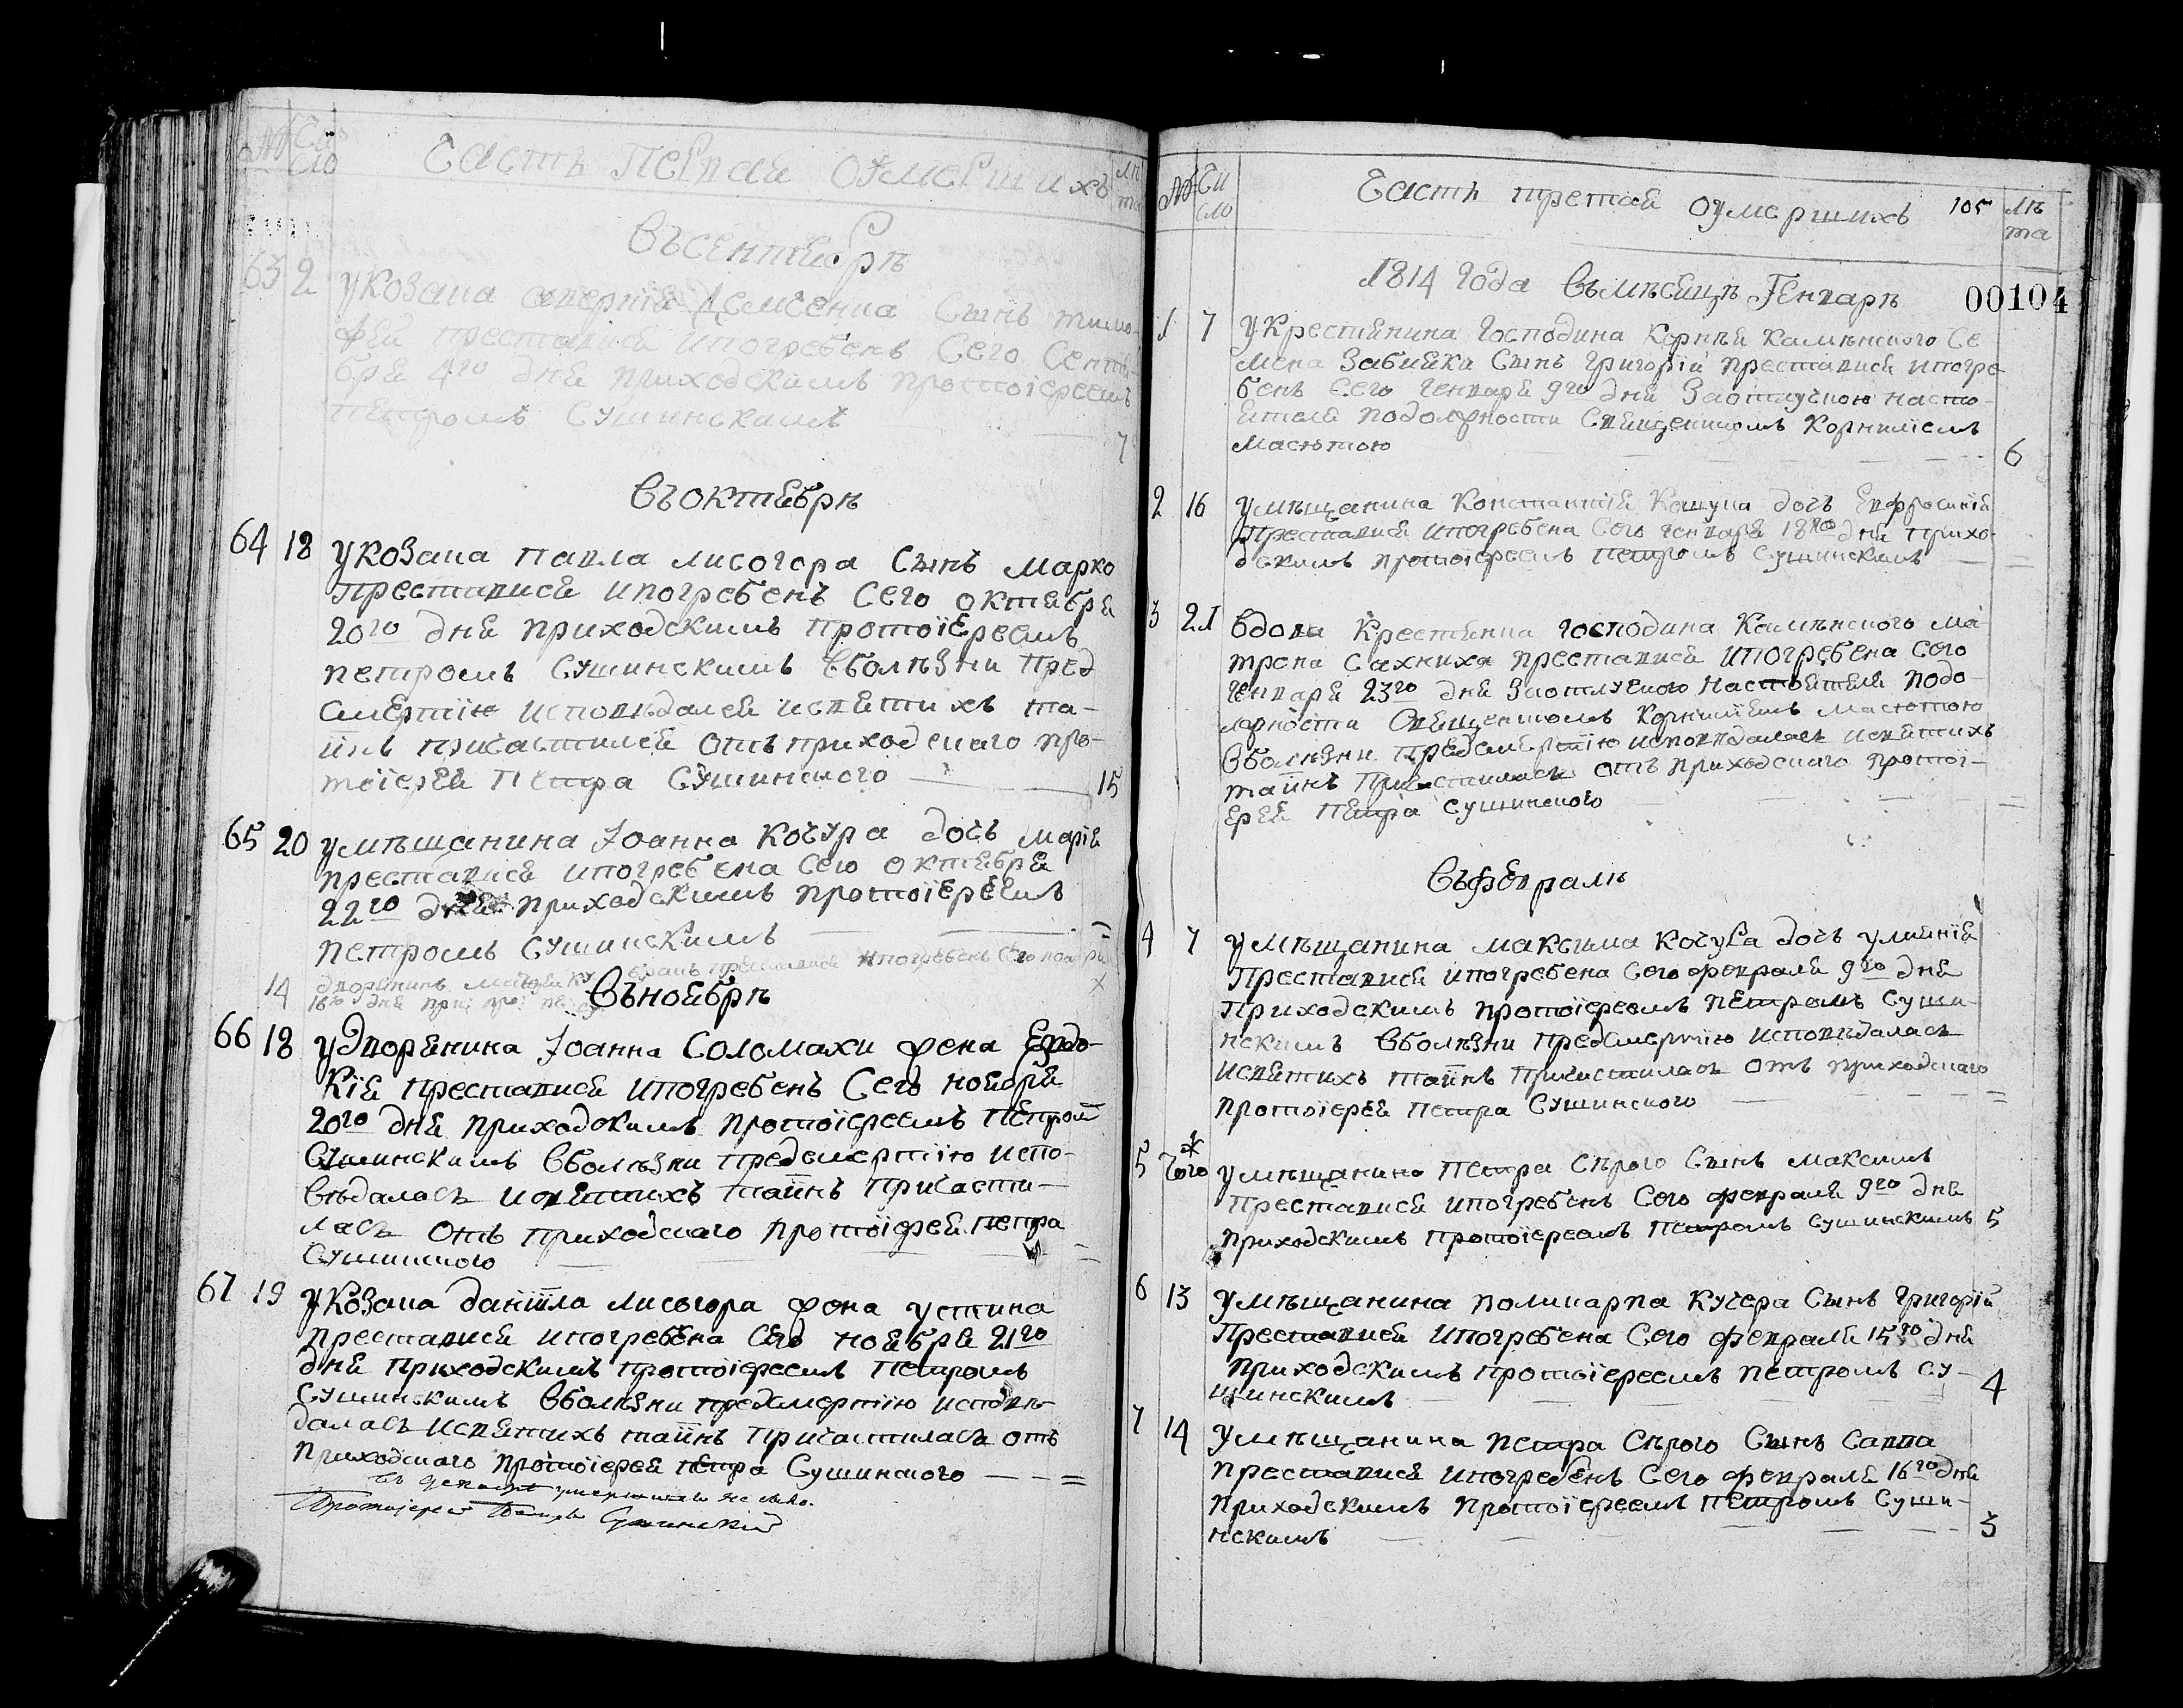 № Чи
сло
Часть Первая оумершихъ
лѣ
та
Въсентябрѣ
63 2 Укозака Семченка Сынъ тимо-
фей преставися ипогребенъ Сего Сентя-
бря 4го дня приходскимъ протоіереемъ
Петромъ Сушинскимъ
7
Въоктябрѣ
64 18 Укозака павла лисогора Сынъ марко
преставися ипогребенъ Сего октября
20го дня приходскимъ протоіереемъ
петромъ Сушинскимъ вболѣзни пред
смертію исповѣдался исвятихъ та-
инъ причастился отъ приходскаго про-
тоіерея Петра Сушинского 15
65 20 Умѣщанина Іоанна Кочура дочь марія
преставися ипогребена Сего октября
22го дня приходскимъ протоіереемъ
петромъ Сушинскимъ =
14 дворянинъ преставися ипогребенъ Сего
16го дня
х
Въноябрѣ
66 18 Удворянина Іоанна Соломахи жена Евдо-
кія преставися ипогребенъ Сего ноября
20го дня приходскимъ протоіереемъ Петром
Сушинскимъ вболѣзни предсмертію испо-
вѣдалась исвятихъ таинъ причасти-
лась отъ приходскаго протоіерея петра
Сушинского =
67 19 Укозака даніила лисогора жена устина
преставися ипогребена Сего ноября 21го
дня приходскимъ протоіереемъ Петромъ
Сушинскимъ вболѣзни предсмертію исповѣ-
далась исвятихъ таинъ причастилась отъ
приходскаго протоіерея петра Сушинского =
въ декабрѣ умершихъ не было.
Протоіерей Петръ Сушинскій
№ Чи
сло
Часть третая оумершихъ 105
лѣ
та
1814 года Вьмѣсяцѣ Генварѣ
00104
1 7 Укрестянина господина Корнѣя Камѣнского Се
мена Забияки Сынъ григорій преставися ипогре
бенъ Сего генваря 9го дня Заотлучкою насто-
ятеля подолжности Священникомъ Корниліемъ
Масютою 6
2 16 Умѣщанина Константія дочь Евфросинія
Преставися ипогребена Сего генваря 18го дня прихо-
дскимъ протоіереемъ петромъ Сушинскимъ =
3 21 Вдова Крестянка господина Камѣнского ма-
трона Сахниха преставися ипогребена Сего
генваря 23го дня Заотлучкою Настоятеля подо-
лжности Священикомъ Корниліемъ масютою
вболѣзни предсмертію исповѣдалась исвятихъ
таинъ причастилась отъ приходскаго протоі-
ерея Петра Сушинского =
Въфевралѣ
4 7 Умѣщанина максима Кочура дочь улиянія
Преставися ипогребена Сего февраля 9го дня
Приходскимъ протоіереемъ петромъ Суши-
нскимъ вболѣзни предсмертію исповѣдалась
исвятихъ таинъ причистилась отъ приходскаго
протоіерея петра Сушинского =
5 того умѣщанина Петра Сѣрого Сынъ максимъ
преставися ипогребенъ Сего февраля 9го дня
приходскимъ протоіереемъ Петромъ Сушинскимъ 5
6 13 Умѣщанина поликарпа Кучера Сынъ григорій
Преставися ипогребена Сего февраля 15го дня
приходскимъ протоіереемъ петромъ Су-
шинскимъ 4
7 14 Умѣщанина петра Сѣрого Сынъ Савва
преставися ипогребенъ Сего февраля 16го дня
приходскимъ протоіереемъ петромъ Суши-
нскимъ 3